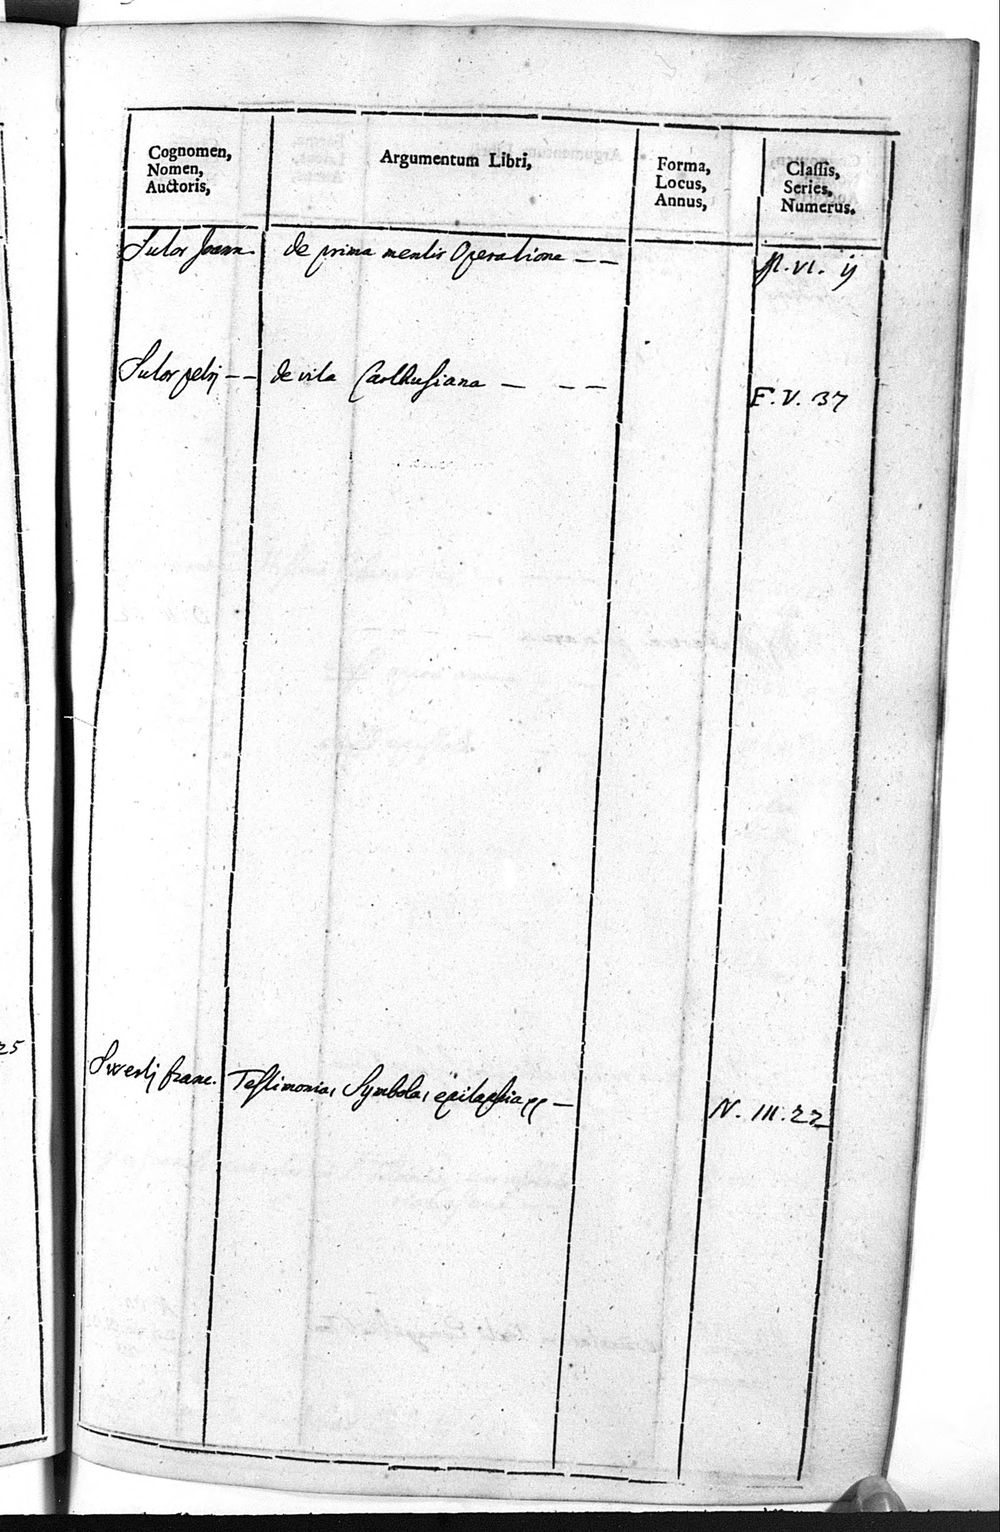 Cognomen,
Nomen,
Auctoris,
Argumentum Libri,
Forma,
Locus,
Annus,
Classis,
Series,
Numerus.
Sutor Joann. de prima mentis Operatione — — VI. ij
Sutor petrj — — de vita Carthusiana — — — F. V. 37
25
Swertj franc. Testimonia, Symbola, epitaphia — N. III. 22